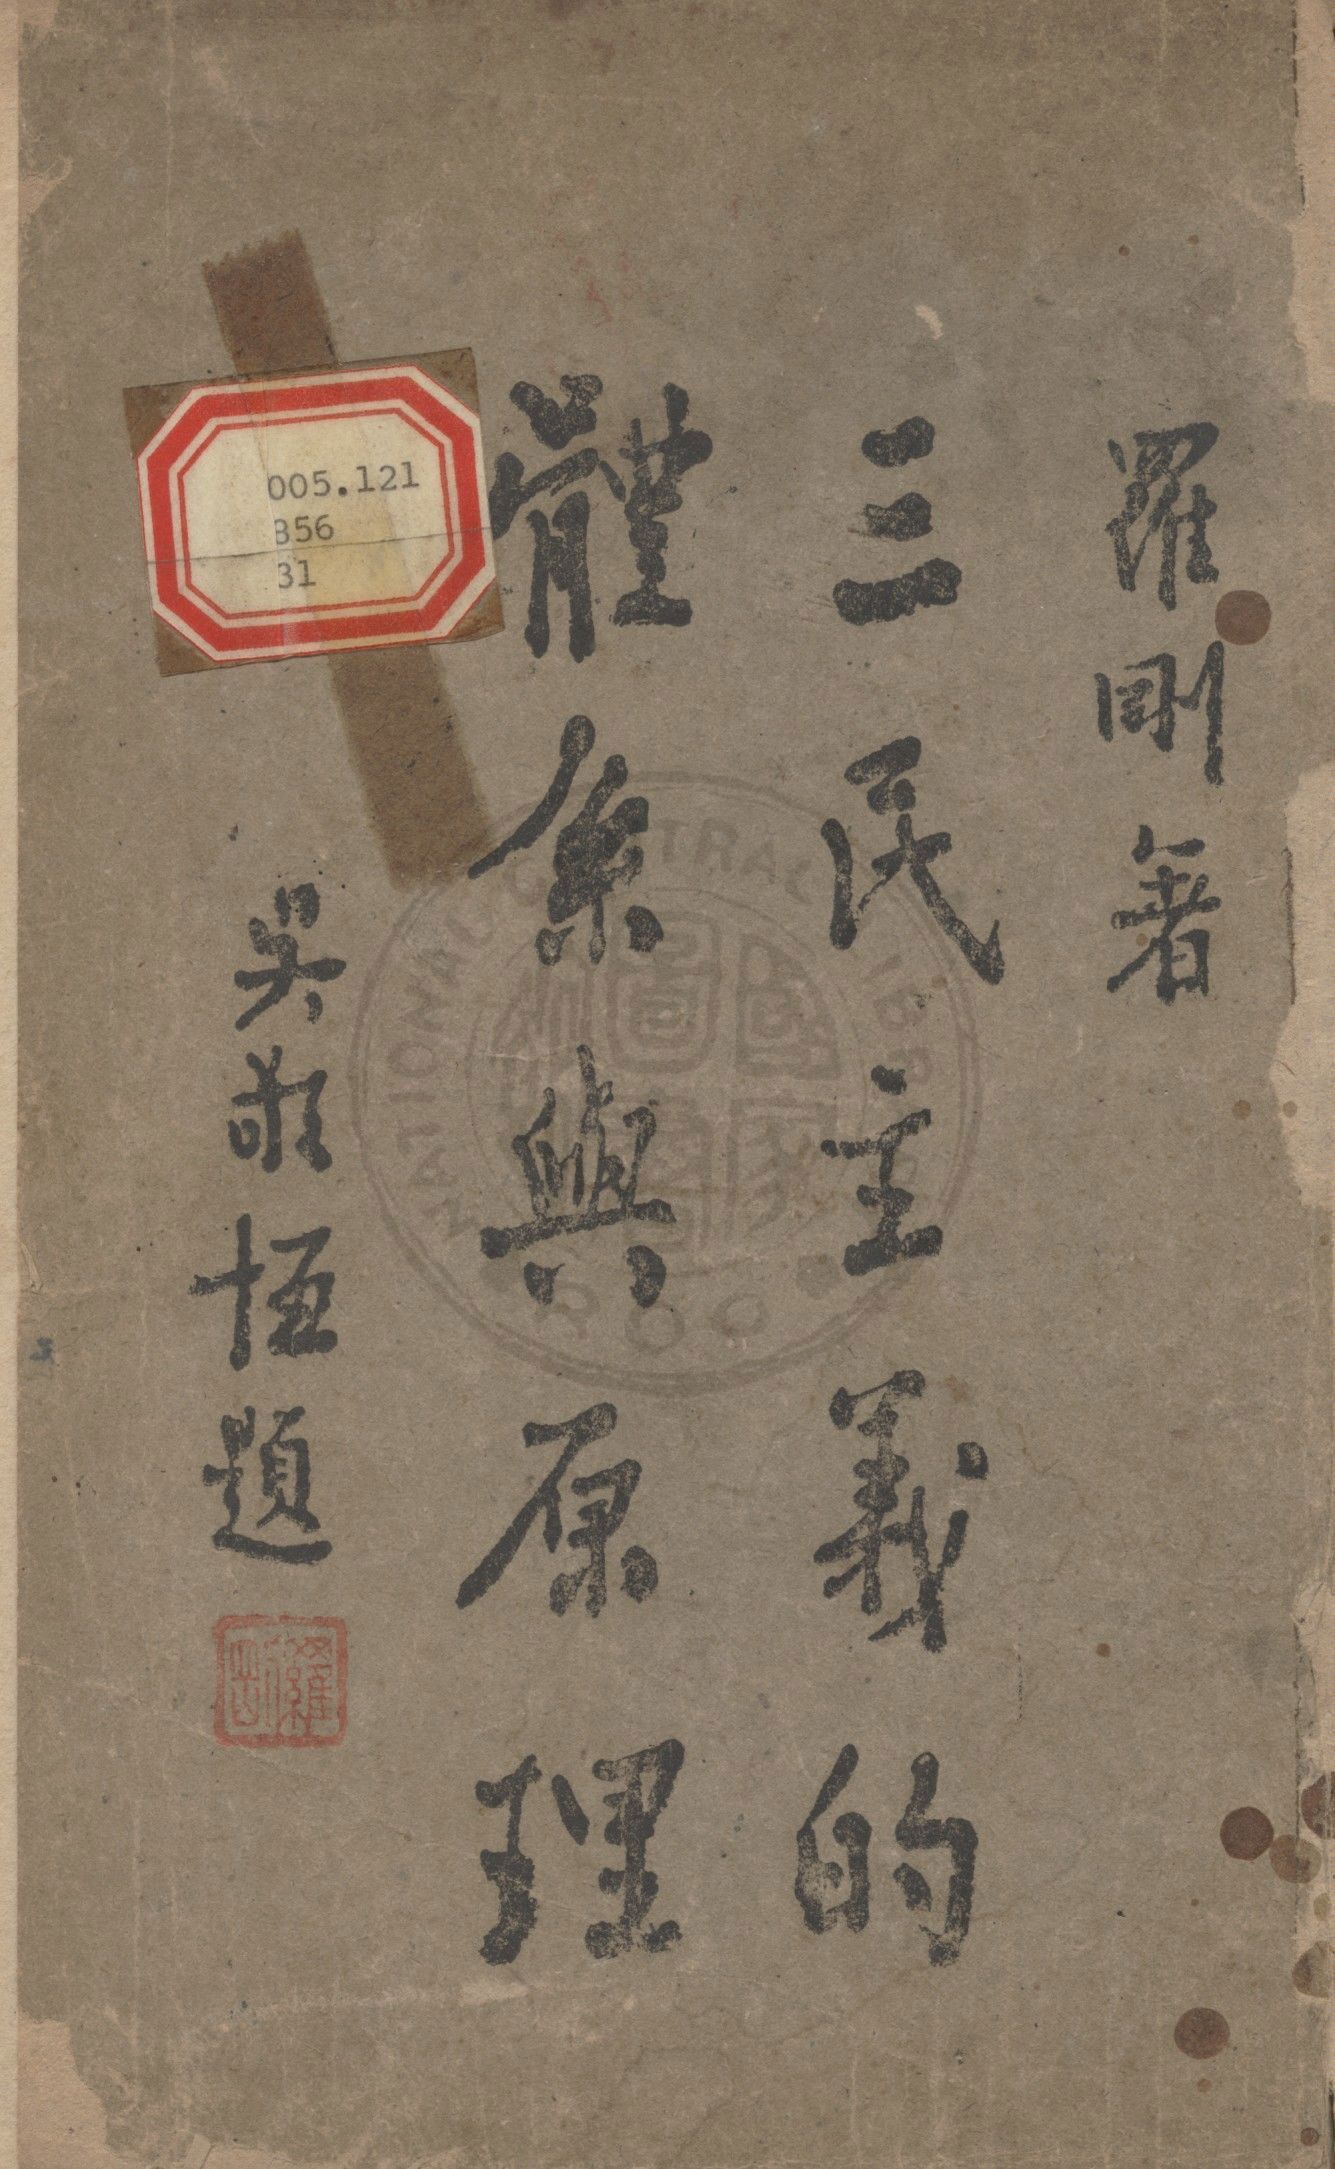 羅剛著
三民主義的
體系與原理
吳敬恒題
羅剛
005.121
856
31
NATIONAL CENTRAL LIBRARY
國家圖書館